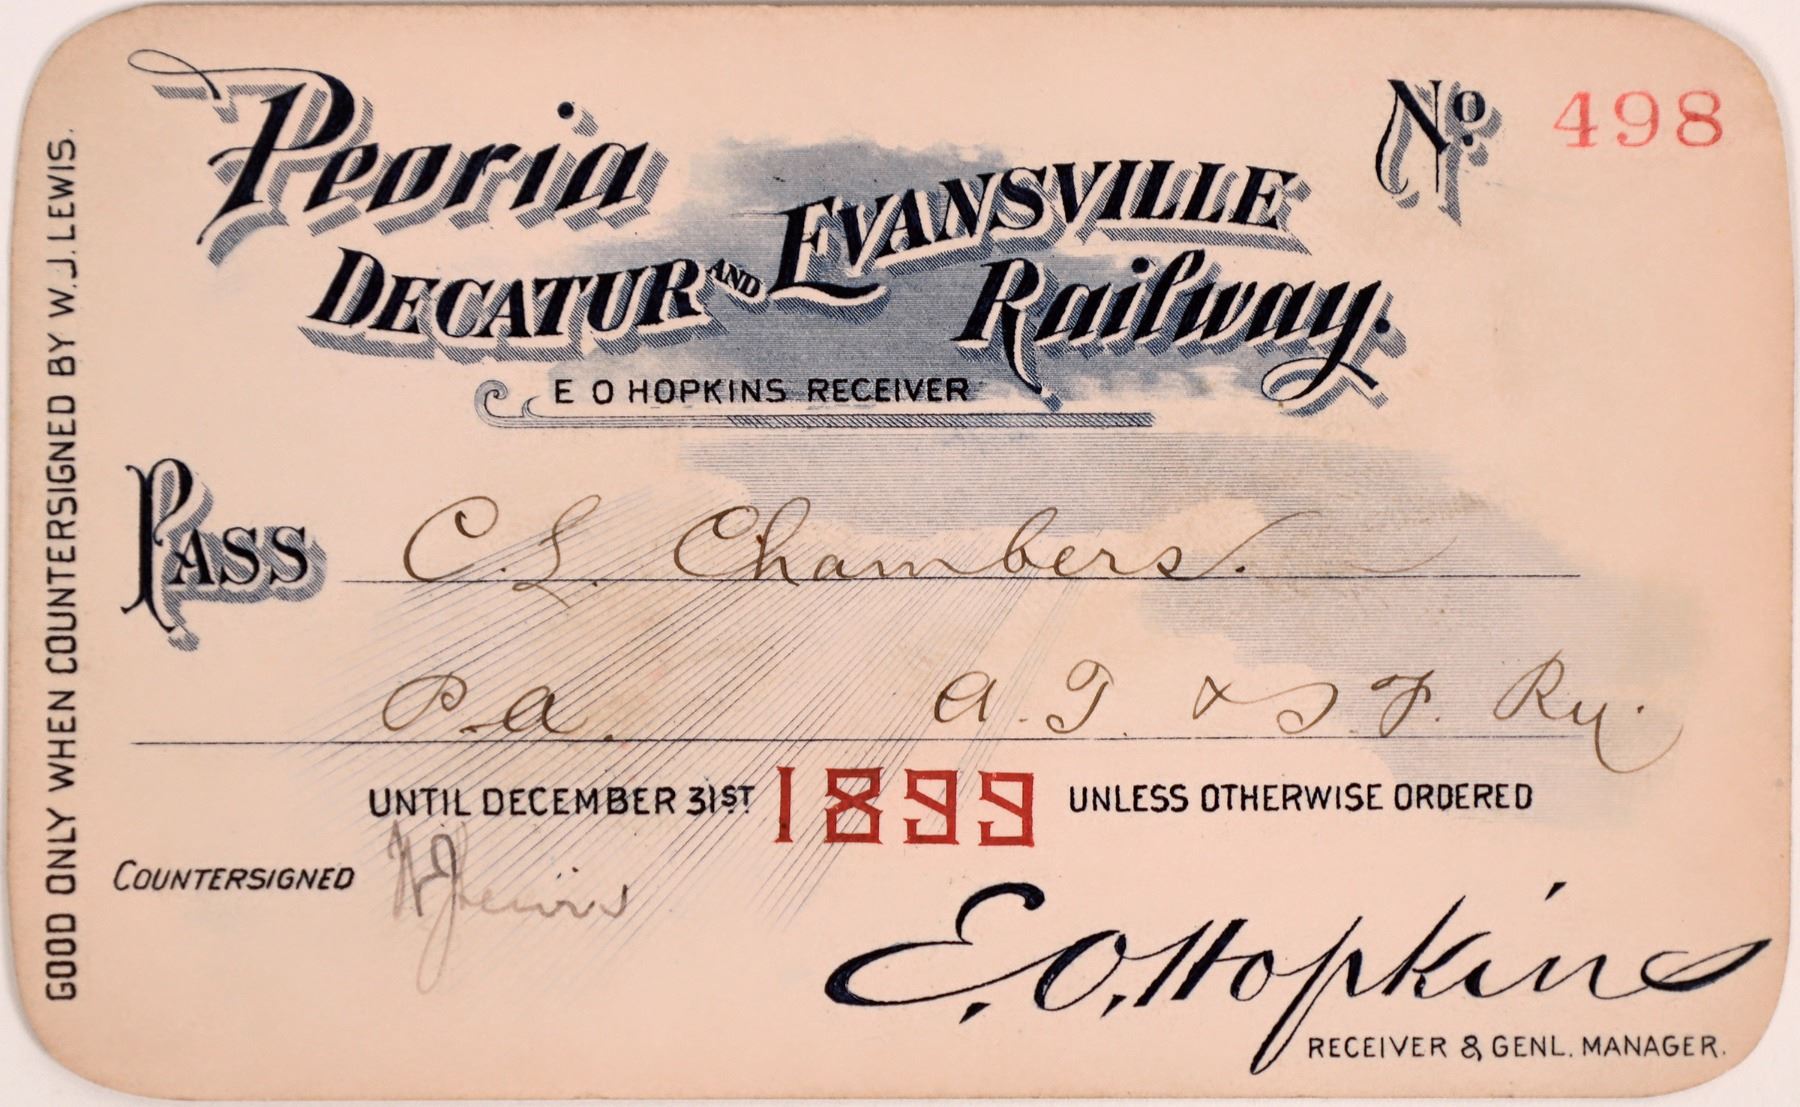 Peoria
No 498
DECATUR AND EVANSVILLE
Railway.
E O HOPKINS RECEIVER
PASS C. L. Chambers.
P.a. A. T. & S. F. Ry.
UNTIL DECEMBER 31ST 1899 UNLESS OTHERWISE ORDERED
COUNTERSIGNED W J Lewis
E. O. Hopkins
RECEIVER & GENL. MANAGER.
GOOD ONLY WHEN COUNTERSIGNED BY W. J. LEWIS.